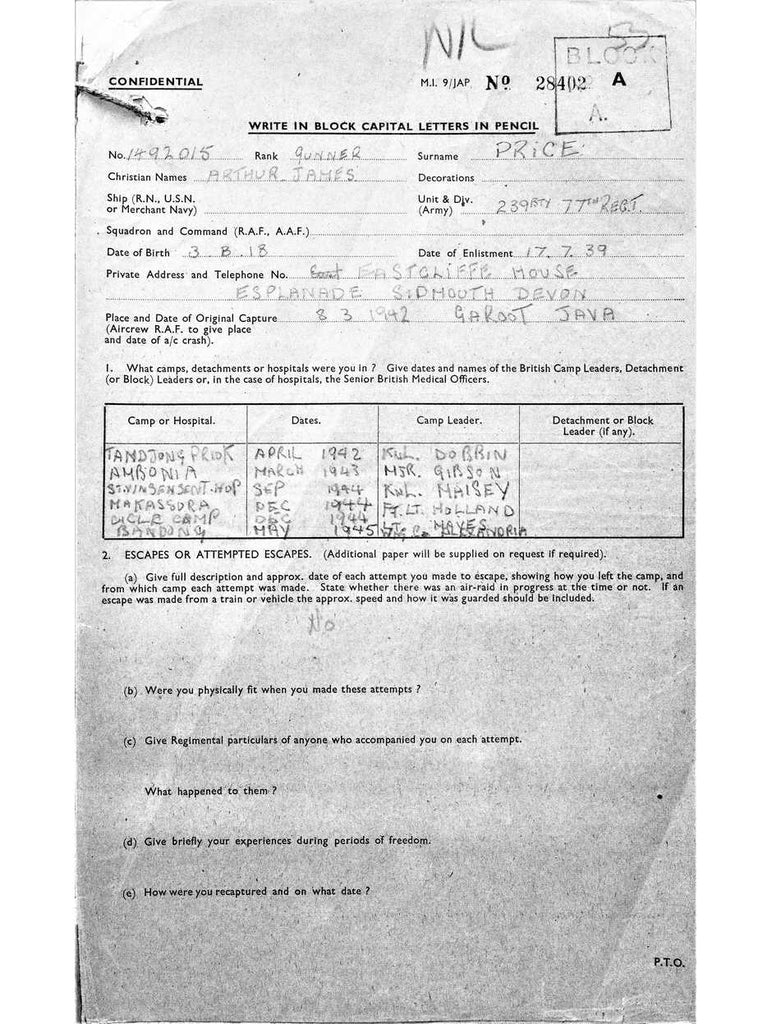 NIL
53
BLOCK
A
A.
CONFIDENTIAL
M.I. 9/JAP Nº 28402
WRITE IN BLOCK CAPITAL LETTERS IN PENCIL
No. 1492015 Rank GUNNER Surname PRICE
Christian Names ARTHUR JAMES Decorations
Ship (R.N., U.S.N. or Merchant Navy)
Unit & Div. (Army) 239 BTY 77TH REGT.
Squadron and Command (R.A.F., A.A.F.)
Date of Birth 3.8.18 Date of Enlistment 17.7.39
Private Address and Telephone No. EASTCLIFFE HOUSE
ESPLANADE SIDMOUTH DEVON
Place and Date of Original Capture 8 3 1942 GAROOT JAVA
(Aircrew R.A.F. to give place
and date of a/c crash).
1. What camps, detachments or hospitals were you in ? Give dates and names of the British Camp Leaders, Detachment
(or Block) Leaders or, in the case of hospitals, the Senior British Medical Officers.
Camp or Hospital. Dates. Camp Leader. Detachment or Block
Leader (if any).
TANDJONG PRIOK APRIL 1942 KNL. DOBBIN
AMBONIA MARCH 1943 MJR. GIBSON
ST.VINSENSENT.HOP SEP 1944 KNL. MAISEY
MAKASSORA DEC 1944 FT.LT. HOLLAND
CICLE CAMP DEC 1944 LT. HAYES
BANDONG MAY 1945 ALEXANDRIA
2. ESCAPES OR ATTEMPTED ESCAPES. (Additional paper will be supplied on request if required).
(a) Give full description and approx. date of each attempt you made to escape, showing how you left the camp, and
from which camp each attempt was made. State whether there was an air-raid in progress at the time or not. If an
escape was made from a train or vehicle the approx. speed and how it was guarded should be included.
No
(b) Were you physically fit when you made these attempts ?
(c) Give Regimental particulars of anyone who accompanied you on each attempt.
What happened to them ?
(d) Give briefly your experiences during periods of freedom.
(e) How were you recaptured and on what date ?
P.T.O.